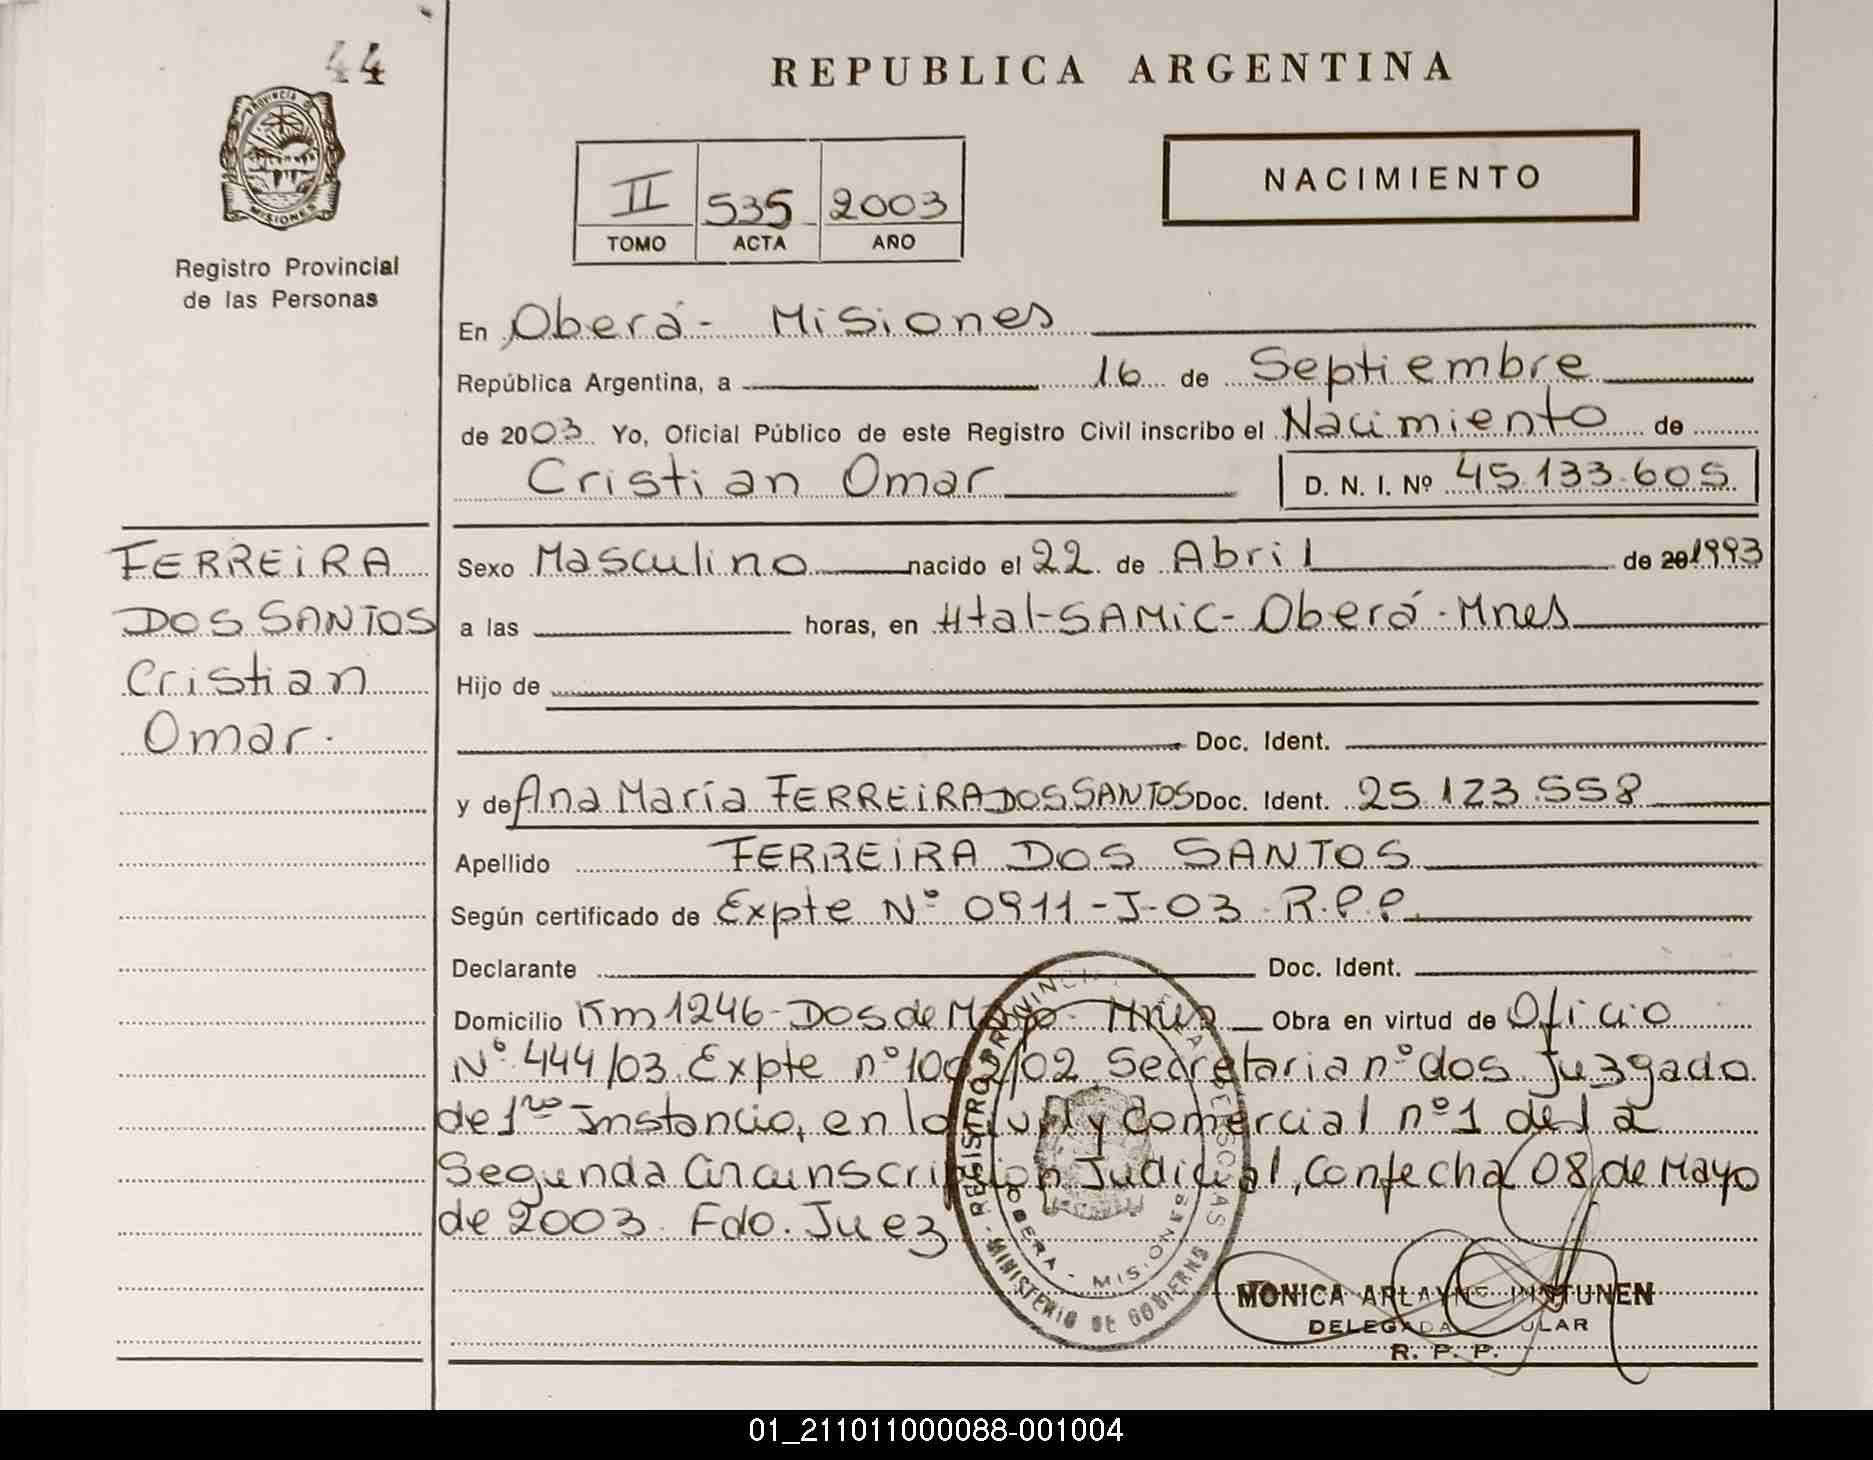 44
PROVINCIA DE
MISIONES
Registro Provincial
de las Personas
REPUBLICA ARGENTINA
II 535 2003
TOMO ACTA AÑO
NACIMIENTO
En Oberá - Misiones
República Argentina, a 16 de Septiembre
de 2003 Yo, Oficial Público de este Registro Civil inscribo el Nacimiento de
Cristian Omar D. N. I. Nº 45.133.605
FERREIRA
DOS SANTOS
Cristian
Omar.
Sexo Masculino nacido el 22 de Abril de 201993
a las horas, en Htal-SAMiC-Oberá-Mnes
Hijo de
Doc. Ident.
y de Ana María FERREIRA DOS SANTOS Doc. Ident. 25.123.558
Apellido FERREIRA DOS SANTOS
Según certificado de Expte Nº 0911-J-03 R.P.P.
Declarante Doc. Ident.
Domicilio Km 1246-Dos de Mayo- Mnes Obra en virtud de Oficio
Nº 444/03 Expte nº /02 Secretaria nº dos Juzgado
de 1ra Instancia, en lo Civil y Comercial nº 1 de la
Segunda Circunscripcion Judicial, Con fecha 08 de Mayo
de 2003. Fdo. Juez
REGISTRO PROVINCIAL DE LAS PERSONAS
OBERA - MISIONES
MINISTERIO DE GOBIERNO
MONICA ARLAYNE
DELEGADA TITULAR
R. P. P.
01_211011000088-001004